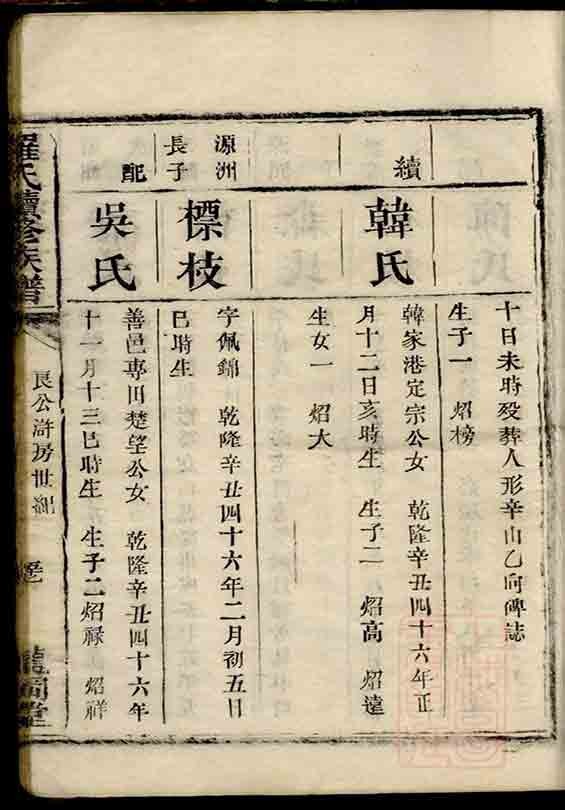 十日未時歿葬人形辛山乙向碑誌
生子一　炤榜
續
韓氏
韓家港定宗公女　乾隆辛丑四十六年正
月十二日亥時生　生子二　炤高　炤遠
生女一　炤大
源洲
長子
標枝
字佩錦　乾隆辛丑四十六年二月初五日
巳時生
配
吳氏
善邑專田楚望公女　乾隆辛丑四十六年
十一月十三巳時生　生子二炤祿　炤祥
羅氏續修族譜
良公滸房世紀